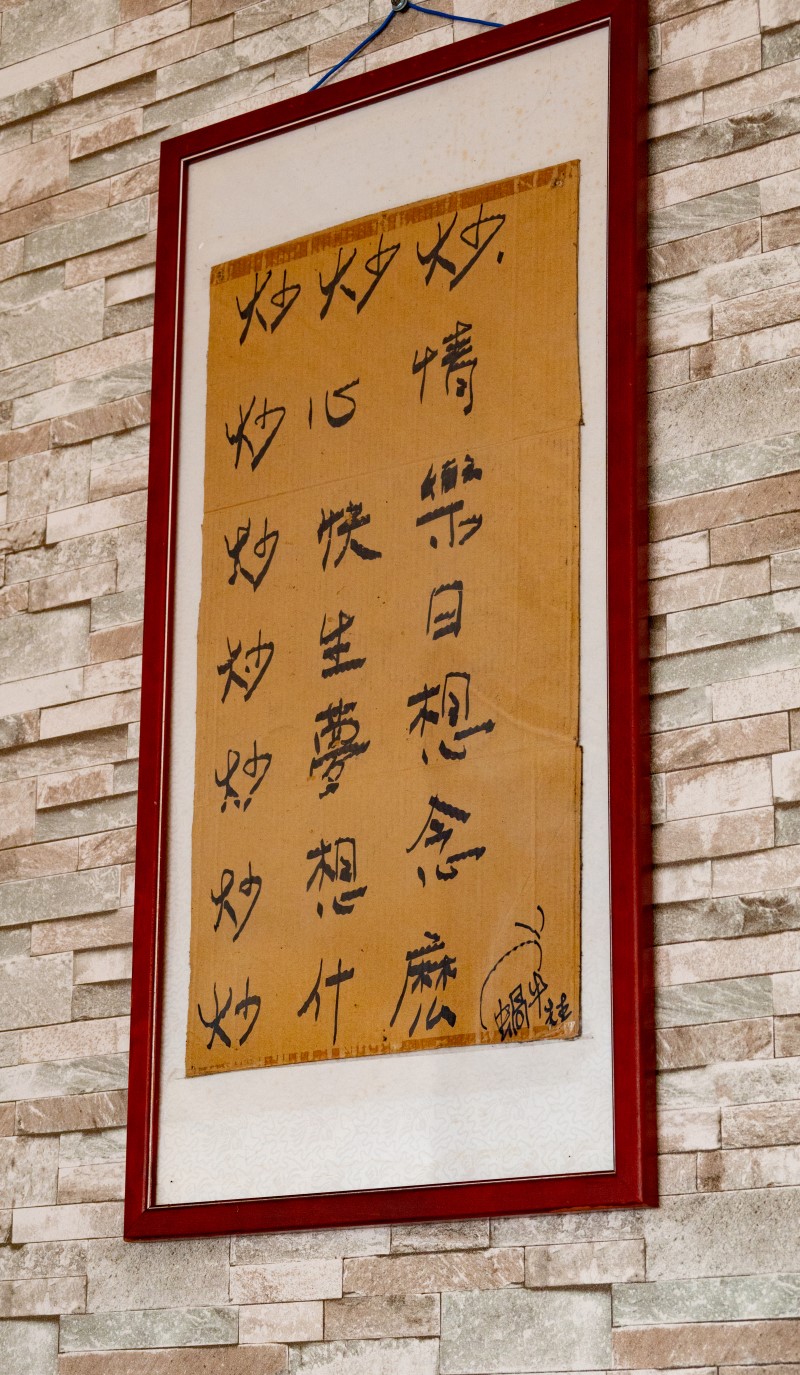 炒炒炒
炒心情
炒快樂
炒生日
炒夢想
炒想念
炒什麼
蝸牛